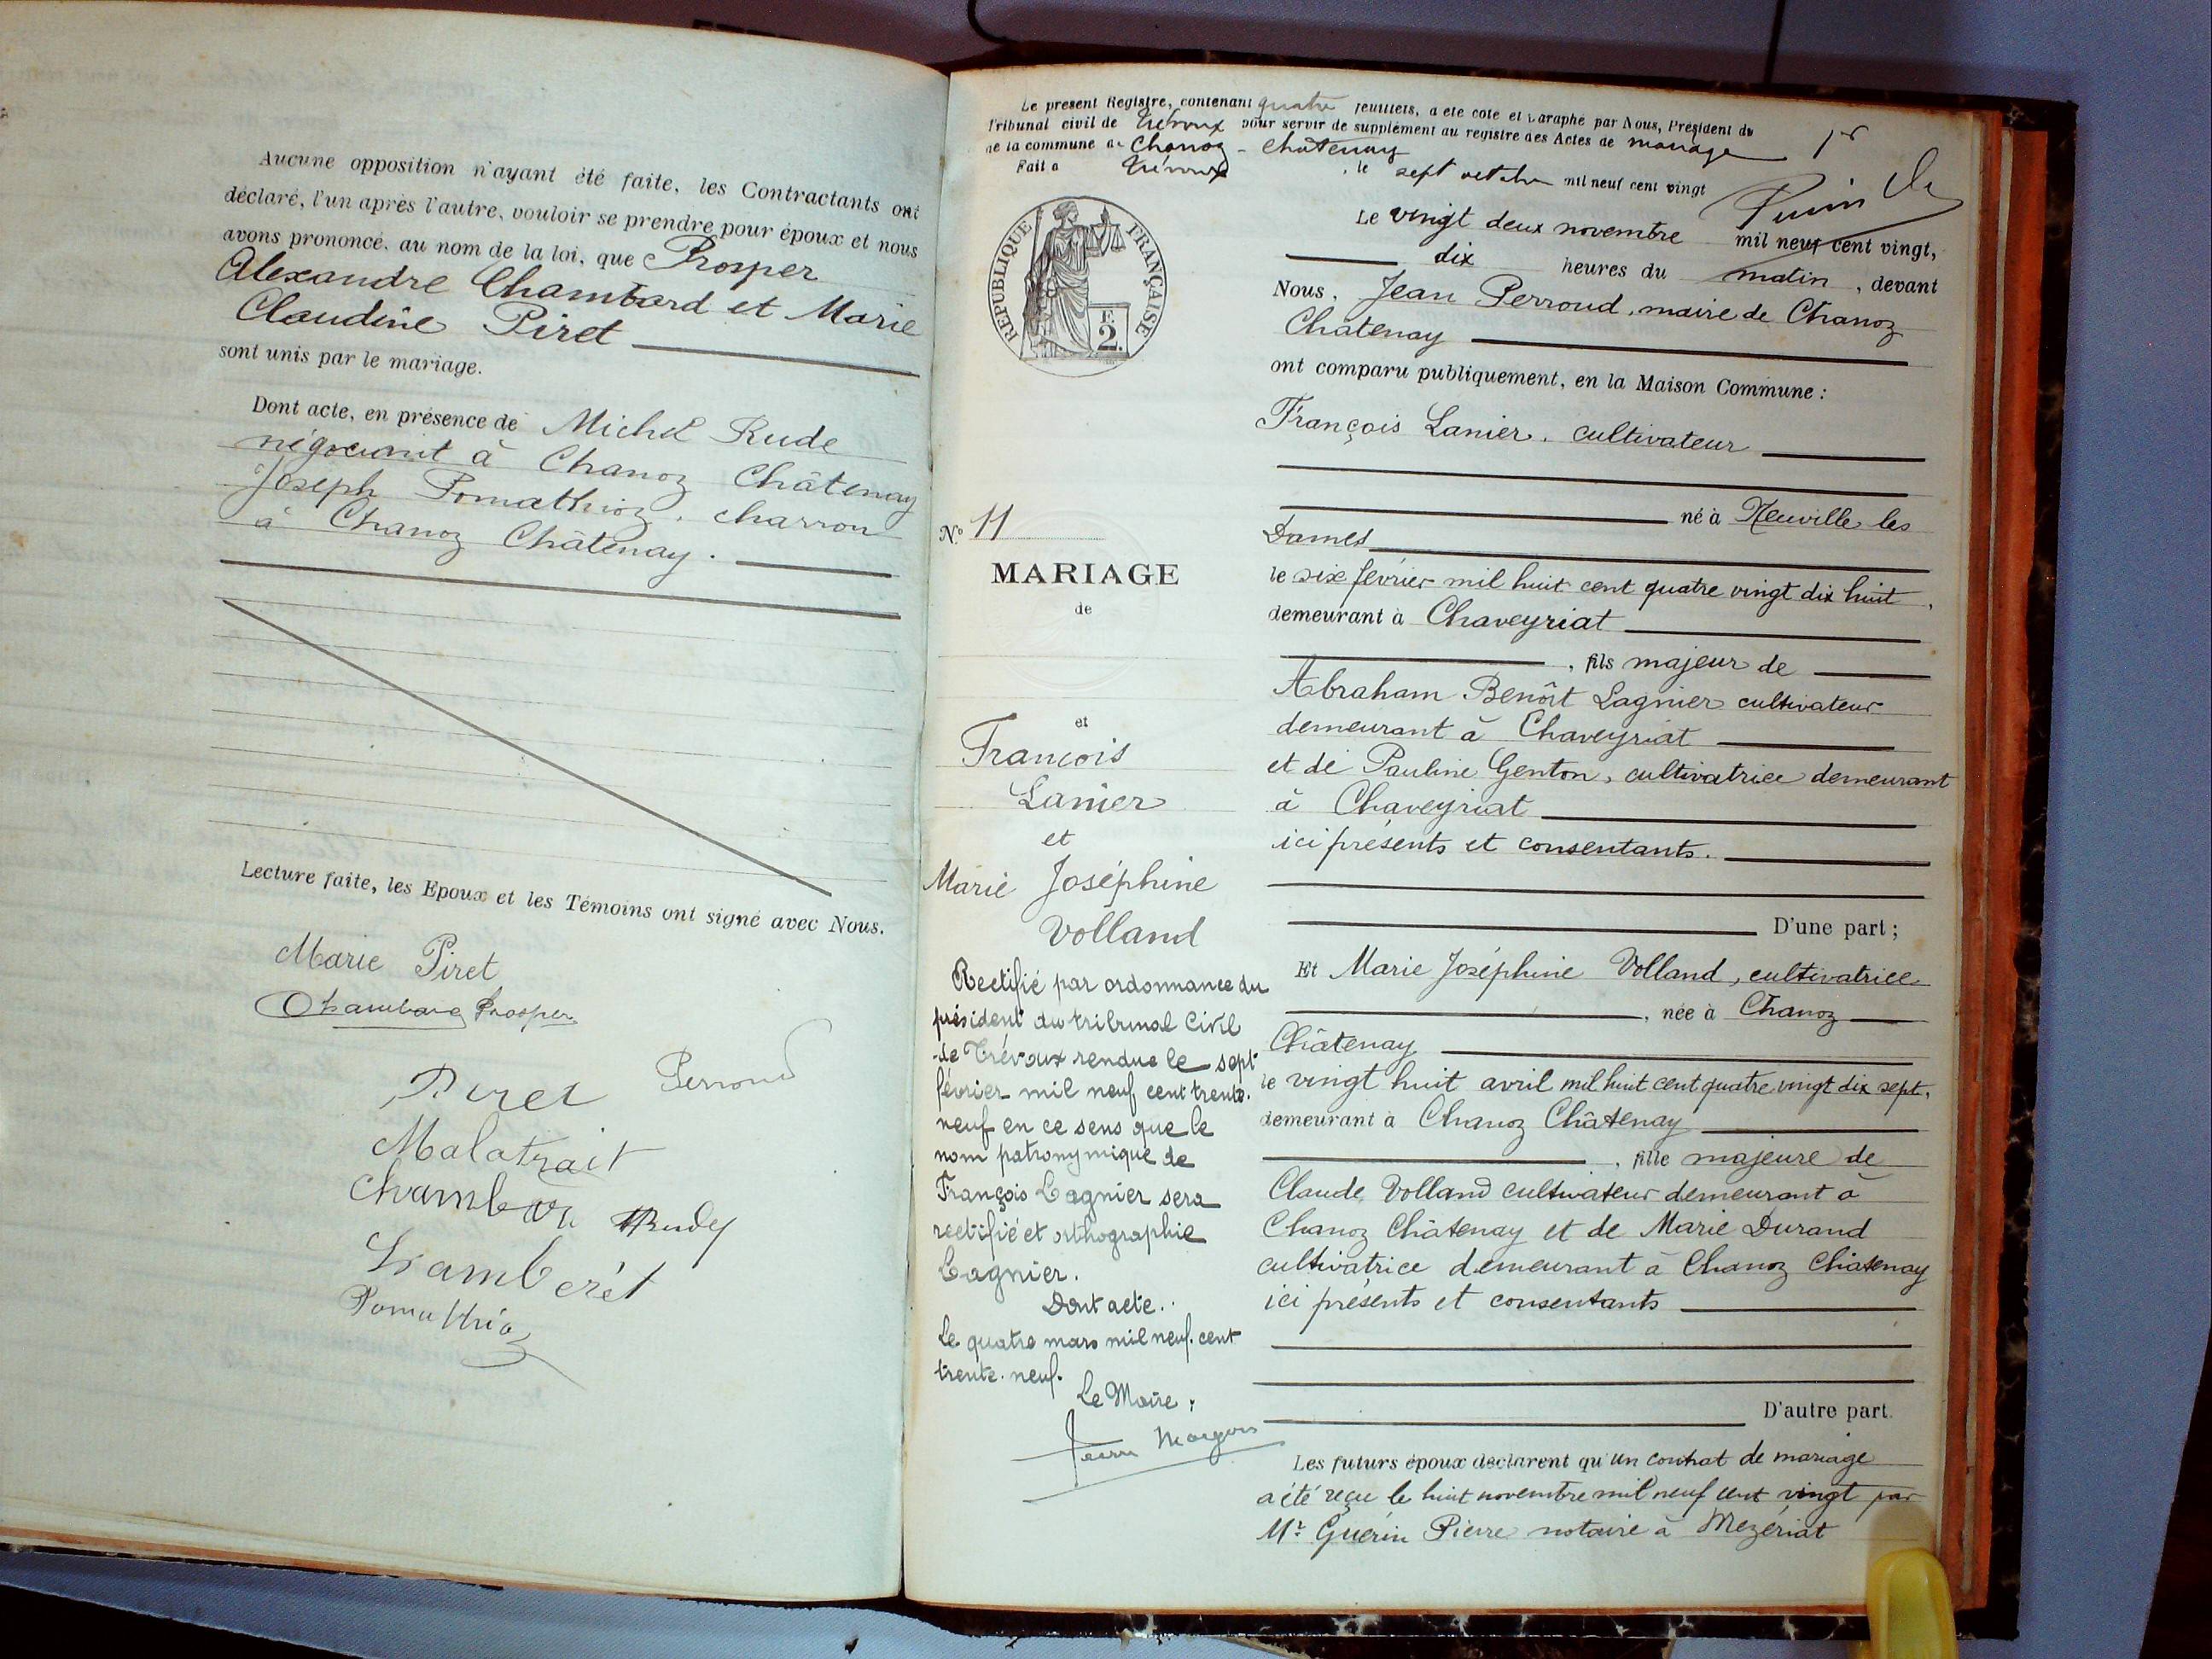 Aucune opposition n'ayant été faite, les Contractants ont
déclaré, l'un après l'autre, vouloir se prendre pour époux et nous
avons prononcé, au nom de la loi, que Prosper
Alexandre Chambard et Marie
Claudine Piret
sont unis par le mariage.
Dont acte, en présence de Michel Rude
négociant à Chanoz Châtenay
Joseph Pomathioz, charron
à Chanoz Châtenay.
Lecture faite, les Epoux et les Témoins ont signé avec Nous.
Marie Piret
Chambard Prosper
Piret Perroud
Malatrait
Chambard Rude
Lamberet
Pomathioz
Le présent Registre, contenant quatre feuillets, a été coté et paraphé par Nous, Président du
Tribunal civil de Trévoux pour servir de supplément au registre des Actes de mariage
de la commune de Chanoz-Chatenay
Fait à Trévoux, le sept octobre mil neuf cent vingt
1r
RÉPUBLIQUE FRANÇAISE
F.
2.
Le vingt deux novembre mil neuf cent vingt,
dix heures du matin, devant
Nous, Jean Perroud, maire de Chanoz
Châtenay
ont comparu publiquement, en la Maison Commune :
François Lanier, cultivateur
né à Neuville les
Dames
le six février mil huit cent quatre vingt dix huit,
demeurant à Chaveyriat
, fils majeur de
Abraham Benoît Lagnier cultivateur
demeurant à Chaveyriat
et de Pauline Genton, cultivatrice demeurant
à Chaveyriat
ici présents et consentants.
D'une part ;
Et Marie Joséphine Volland, cultivatrice
, née à Chanoz
Châtenay
le vingt huit avril mil huit cent quatre vingt dix sept,
demeurant à Chanoz Châtenay
, fille majeure de
Claude Volland cultivateur demeurant à
Chanoz Châtenay et de Marie Durand
cultivatrice demeurant à Chanoz Châtenay
ici présents et consentants
D'autre part.
Les futurs époux déclarent qu'un contrat de mariage
a été reçu le huit novembre mil neuf cent vingt par
Mr Guérin Pierre notaire à Mezériat
N.º 11
MARIAGE
de
et
François
Lanier
et
Marie Joséphine
Volland
Rectifié par ordonnance du
président du tribunal Civil
de Trévoux rendue le sept
février mil neuf cent trente.
neuf en ce sens que le
nom patronymique de
François Lagnier sera
rectifié et orthographié
Lagnier.
Dont acte.
Le quatre mars mil neuf. cent
trente. neuf.
Le Maire :